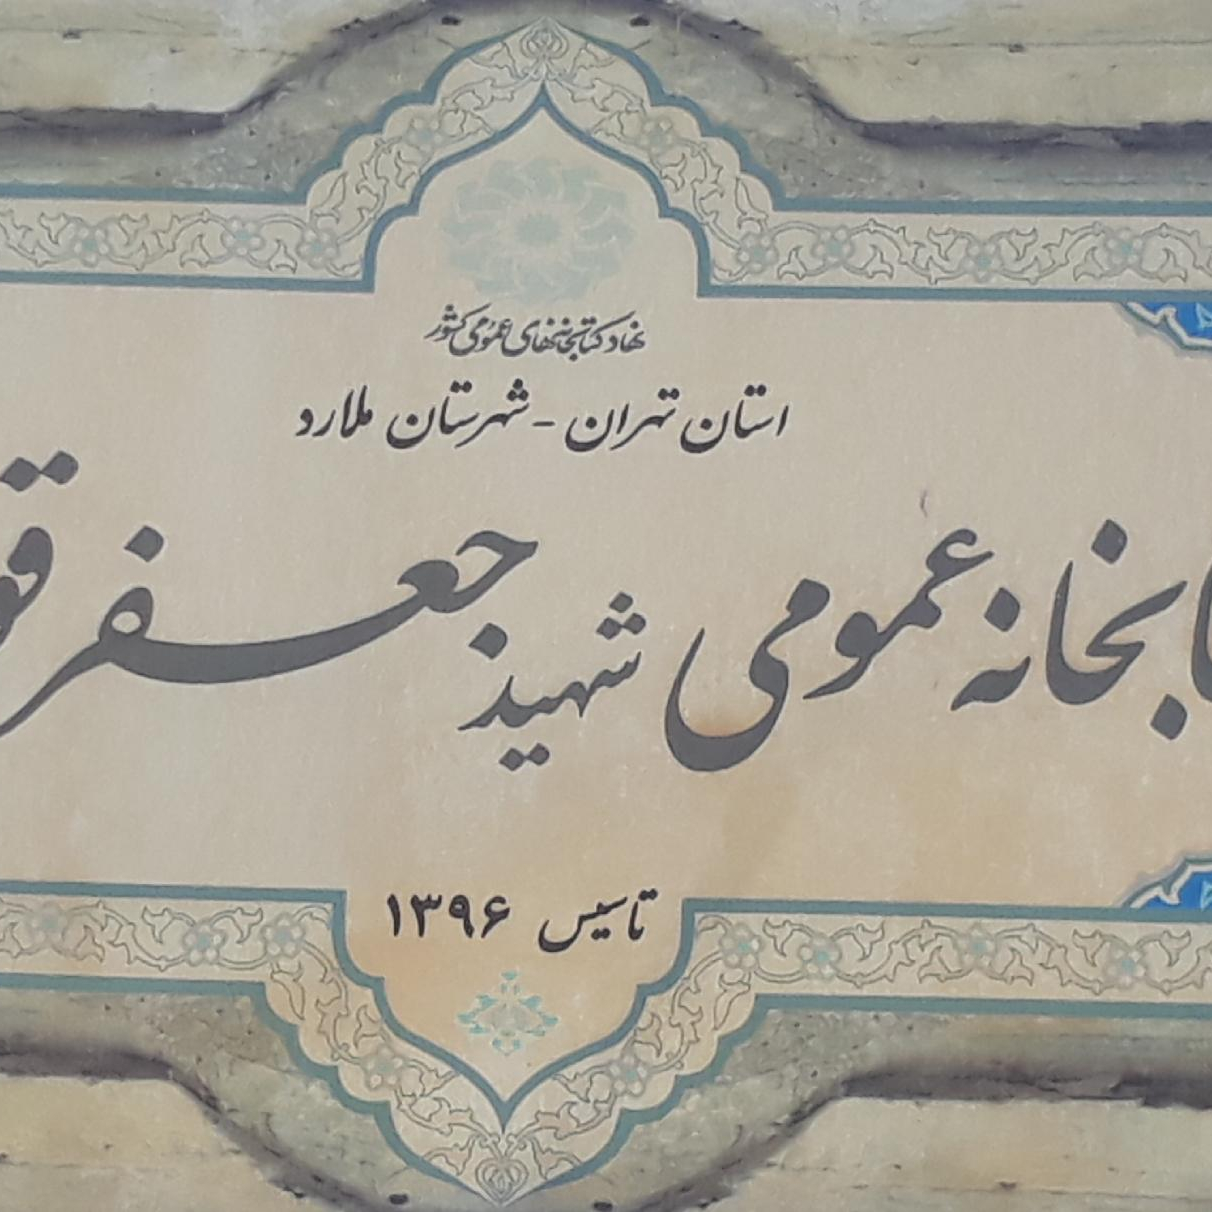 نهاد کتابخانه‌های عمومی کشور
استان تهران - شهرستان ملارد
عمومی شهید جعفر
تاسیس ۱۳۹۶